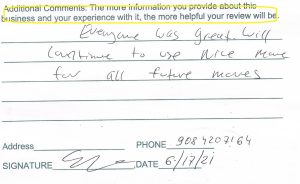 Additional Comments. The more information you provide about this
business and your experience with it, the more helpful your review will be.
Everyone was great will
continue to use Nice move
for all future moves
Address PHONE 9084207164
SIGNATURE DATE 6/17/21